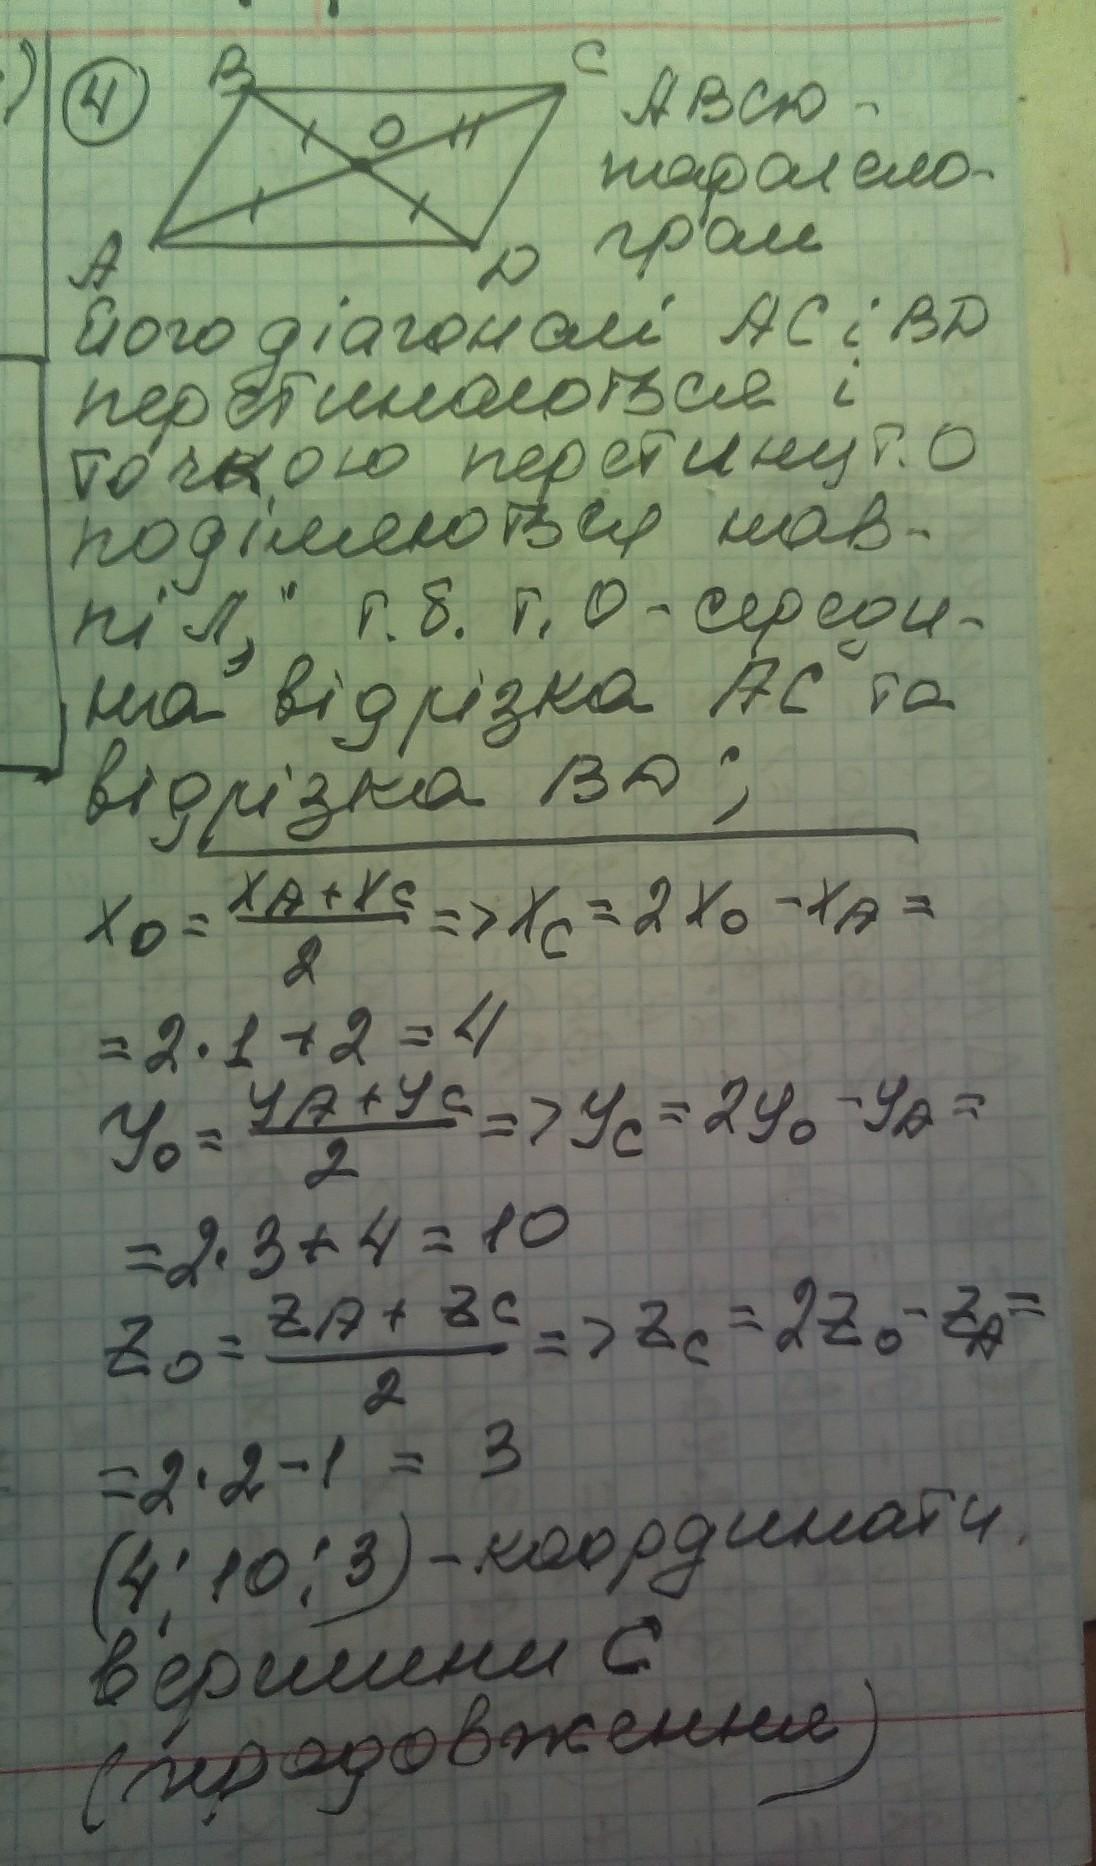 4
B
C
O
A
D
ABCD -
паралело-
грам
його діагоналі AC і BD
перетинаються і
точкою перетину т. O
поділяються нав-
піл, т. б. т. O - середи-
на відрізка AC та
відрізка BD;
x₀ = (x_A + x_C)/2 => x_C = 2x₀ - x_A =
= 2·1 + 2 = 4
y₀ = (y_A + y_C)/2 => y_C = 2y₀ - y_A =
= 2·3 + 4 = 10
z₀ = (z_A + z_C)/2 => z_C = 2z₀ - z_A =
= 2·2 - 1 = 3
(4; 10; 3) - координати
вершини C
(продовження)